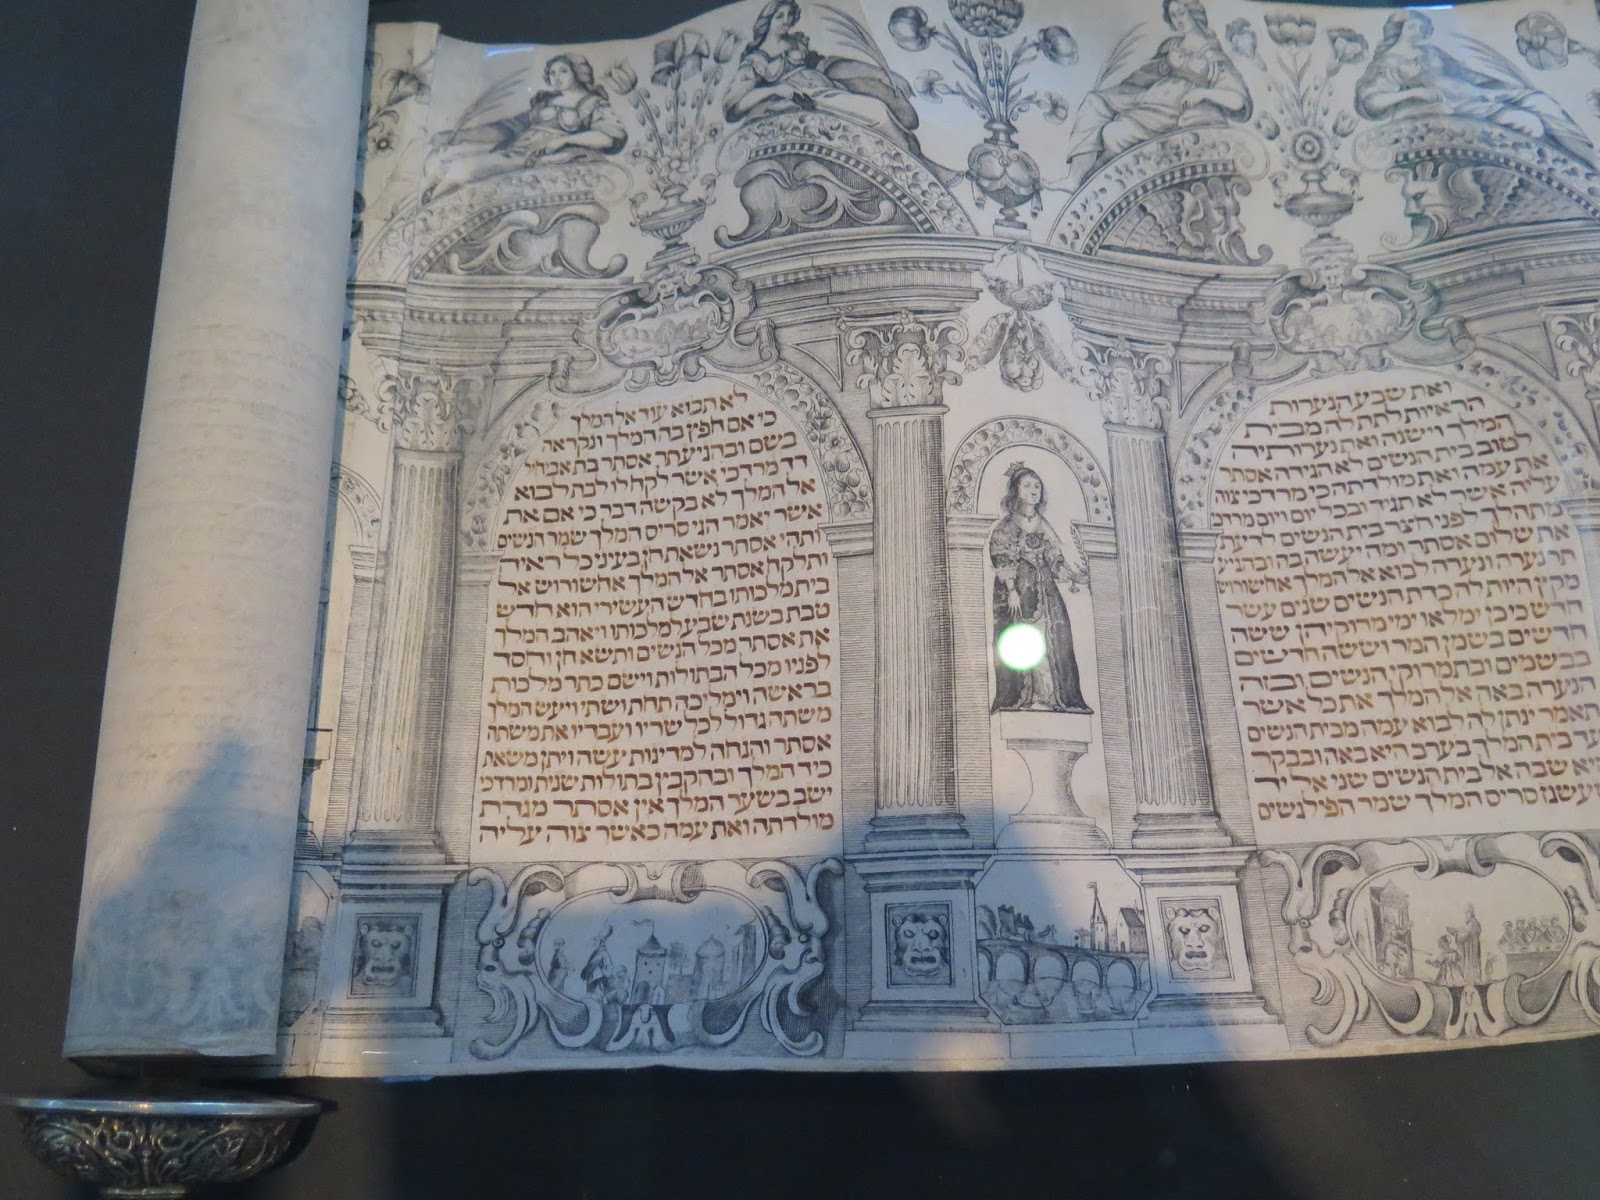 ואת שבע הנערות
הראיות לתת לה מבית
המלך וישנה ואת נערותיה
לטוב בית הנשים לא הגידה אסתר
את עמה ואת מולדתה כי מרדכי צוה
עליה אשר לא תגיד ובכל יום ויום
מתהלך לפני חצר בית הנשים לדעת
את שלום אסתר ומה יעשה בה ובהגיע
תר נערה ונערה לבוא אל המלך אחשורוש
מקץ היות לה כדת הנשים שנים עשר
חדש כי כן ימלאו ימי מרוקיהן ששה
חדשים בשמן המר וששה חדשים
בבשמים ובתמרוקי הנשים ובזה
הנערה באה אל המלך את כל אשר
תאמר ינתן לה לבוא עמה מבית הנשים
עד בית המלך בערב היא באה ובבקר
היא שבה אל בית הנשים שני אל יד
שעשגז סריס המלך שמר הפילגשים
לא תבוא עוד אל המלך
כי אם חפץ בה המלך ונקראה
בשם ובהגיע תר אסתר בת אביחיל
דד מרדכי אשר לקח לו לבת לבוא
אל המלך לא בקשה דבר כי אם את
אשר יאמר הגי סריס המלך שמר הנשים
ותהי אסתר נשאת חן בעיני כל ראיה
ותלקח אסתר אל המלך אחשורוש אל
בית מלכותו בחדש העשירי הוא חדש
טבת בשנת שבע למלכותו ויאהב המלך
את אסתר מכל הנשים ותשא חן וחסד
לפניו מכל הבתולות וישם כתר מלכות
בראשה וימליכה תחת ושתי ויעש המלך
משתה גדול לכל שריו ועבדיו את משתה
אסתר והנחה למדינות עשה ויתן משאת
כיד המלך ובהקבץ בתולות שנית ומרדכי
ישב בשער המלך אין אסתר מגדת
מולדתה ואת עמה כאשר צוה עליה